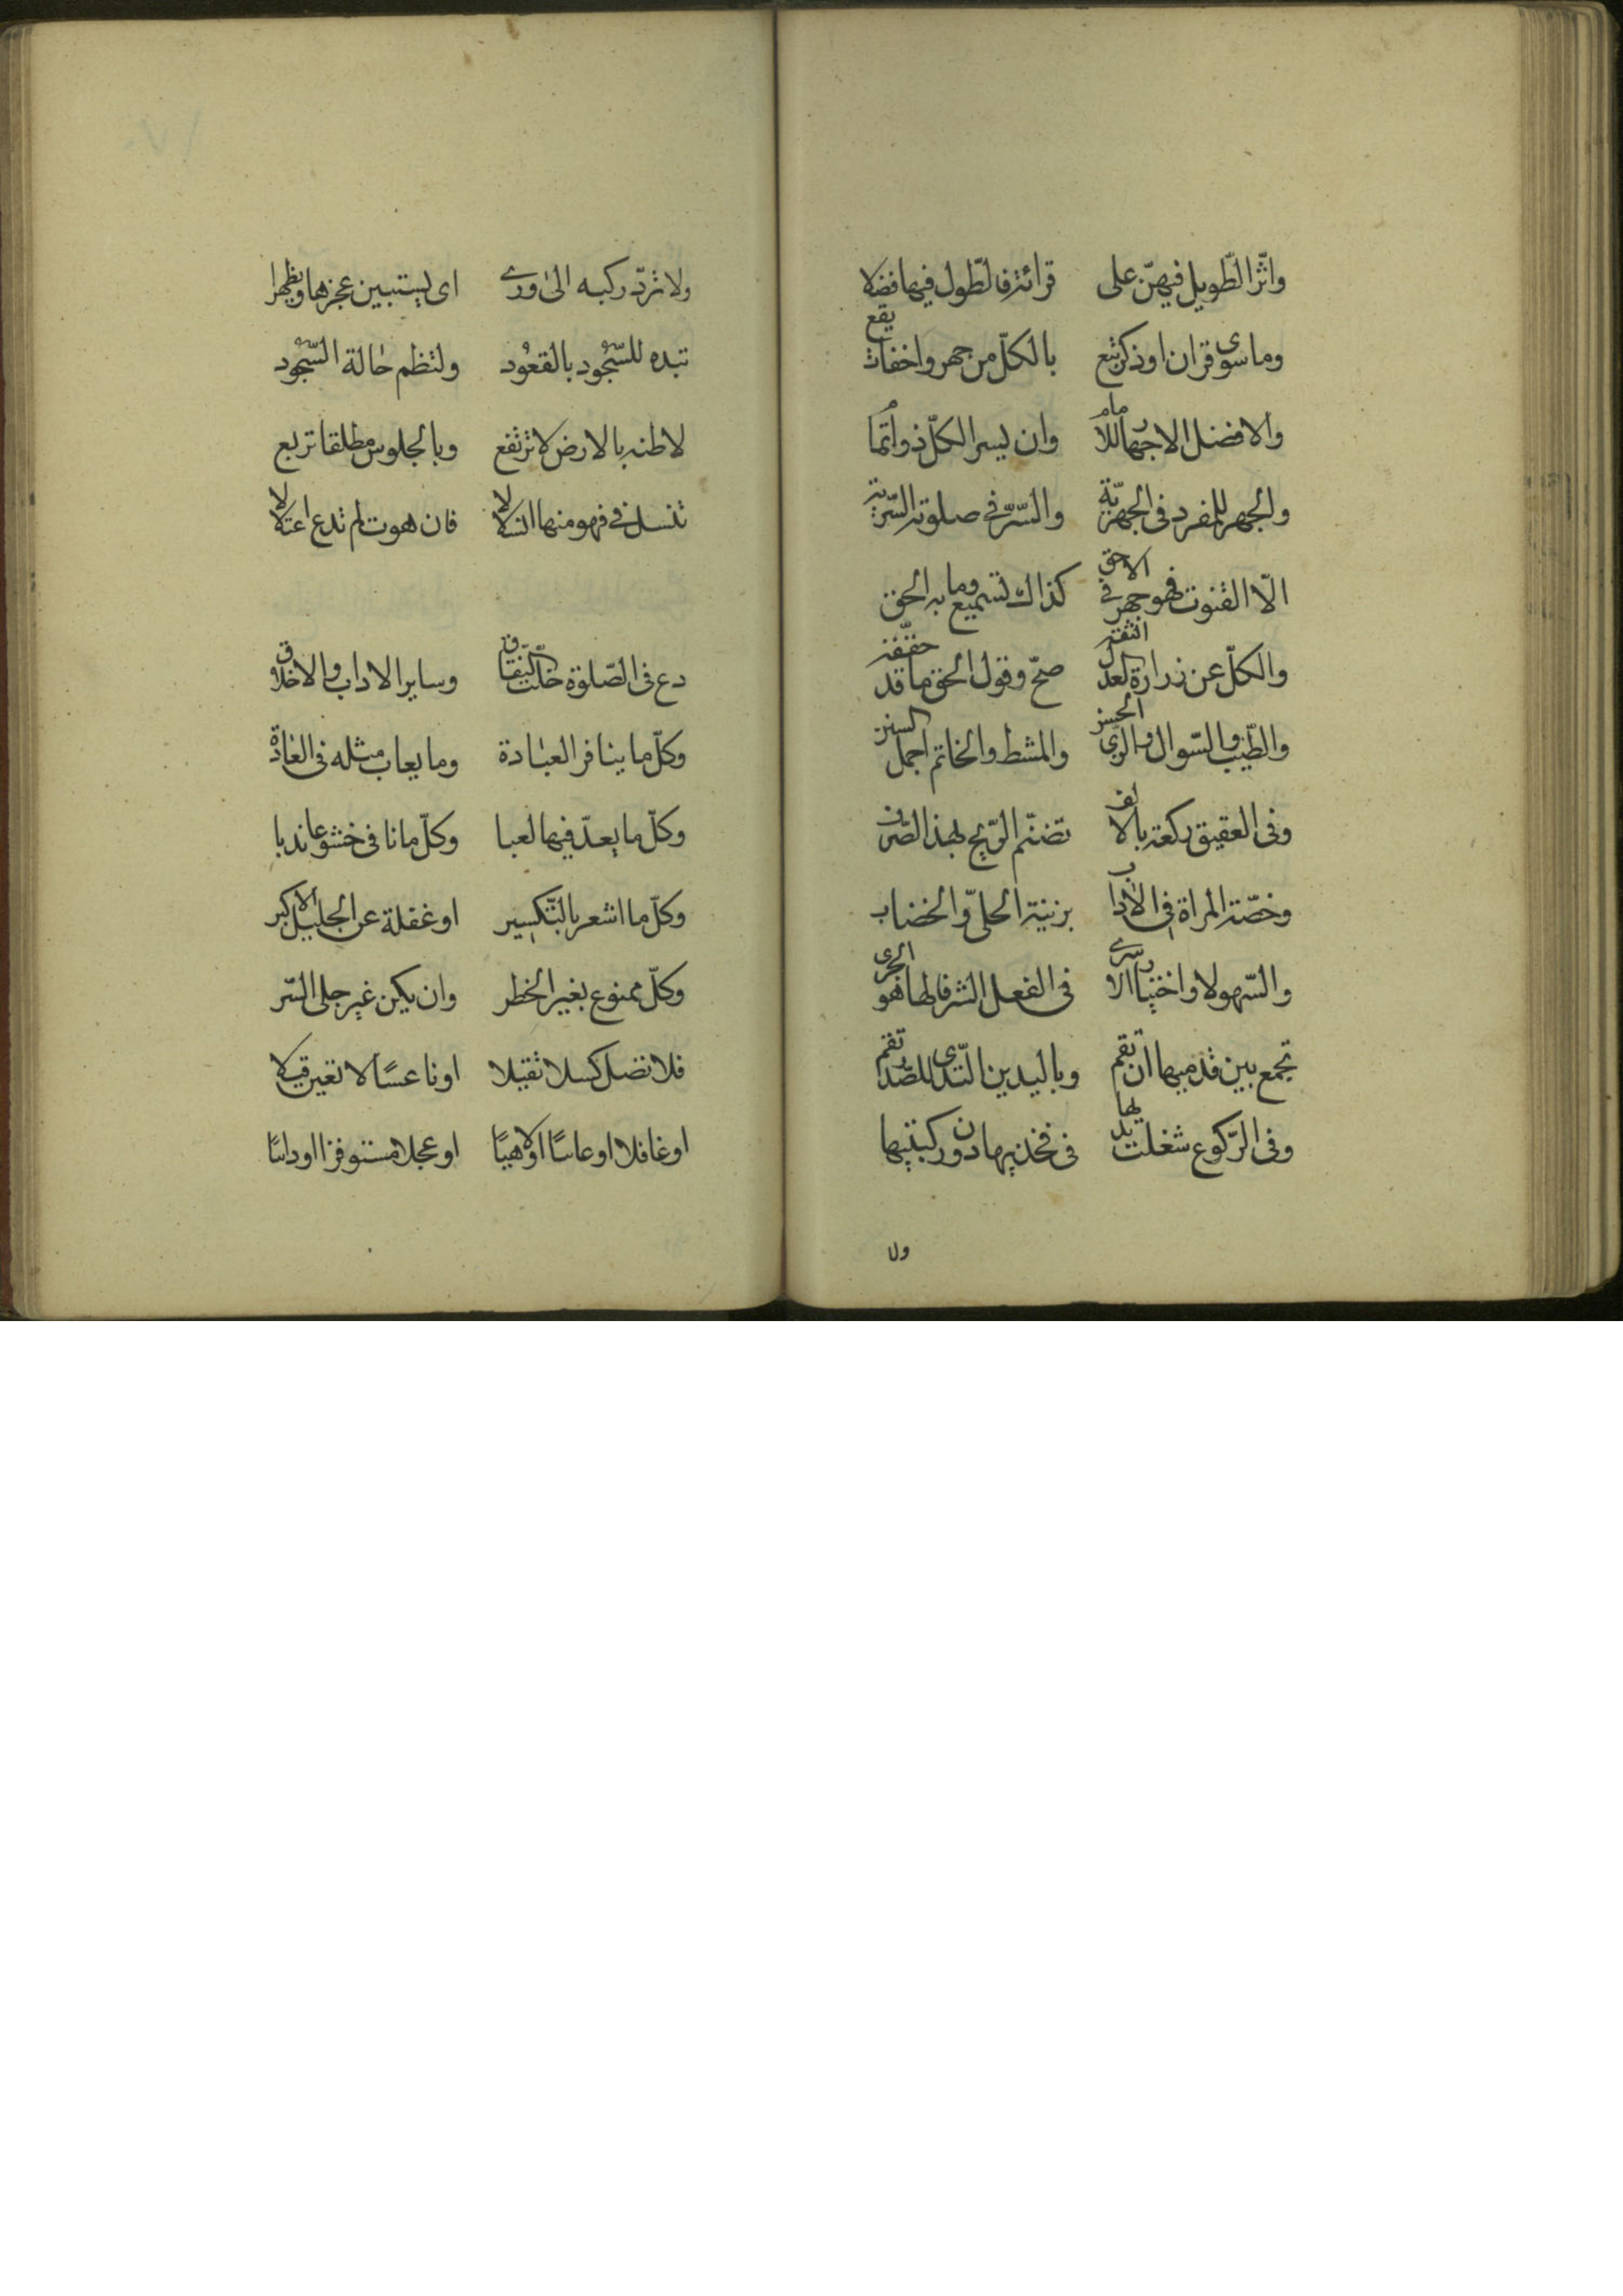 واثّر الطّويل فيهنّ على قرائة فالطّول فيها فضلا
وما سوى قران او ذكر تبع بالكلّ من جهر واخفات يقع
والافضل الاجهار للامام وان يسر الكلّ ذو ائتما
والجهر للمفرد فى الجهريّة والسّرّ فى صلوته السّرّية
الّا القنوت فهو جهر فى الاحق كذاك تسميع وما به الحق
والكلّ عن زرارة العدل الثقة صحّ وقول الحق ما قد حقّقه
والطّيب والسّواك والزّي الحسن والمشط والخاتم اجمل السنن
وفى العقيق ركعة بالالف تضمّ الرّبح لهذا الصّرف
وخصّة المراة فى الاداب بزينة الحلىّ والخضاب
والسّهو لا واختيا الاسرى فى الفعل الشرفا لها هو الحرى
تجمع بين قدميها ان تقم وباليدين الثّدى للصّدر تضم
وفى الرّكوع شغلت يديها فى فخذيها دون ركبتيها
ولا
ولا تردّ ركبه الى ورى اى يستبين عجزها ويظهرا
تبده للسّجود بالقعود ولتنظم حالة السّجود
لاطئه بالارض لا ترتفع وبالجلوس مطلقا تربع
تنسل فى نهو منها انسلالا فان هوت لم تدع اعتلالا
دع فى الصّلوة خلّت النّفاق وساير الاداب والاخلاق
وكلّ ما ينافر العبادة وما يعاب مثله فى العادة
وكلّ ما يعدّ فيها لعبا وكلّ ما نافى خشوعا ندبا
وكلّ ما اشعر بالتّكسير او غفلة عن الجليل الاكبر
وكلّ ممنوع بغير الخطر وان يكن غير جلى السّر
فلا تصل كسلا ثقيلا او ناعسًا لا تعير قيلا
او غافلا او عابسًا او لاهيًا او عجلا مستوفزا او داسًا